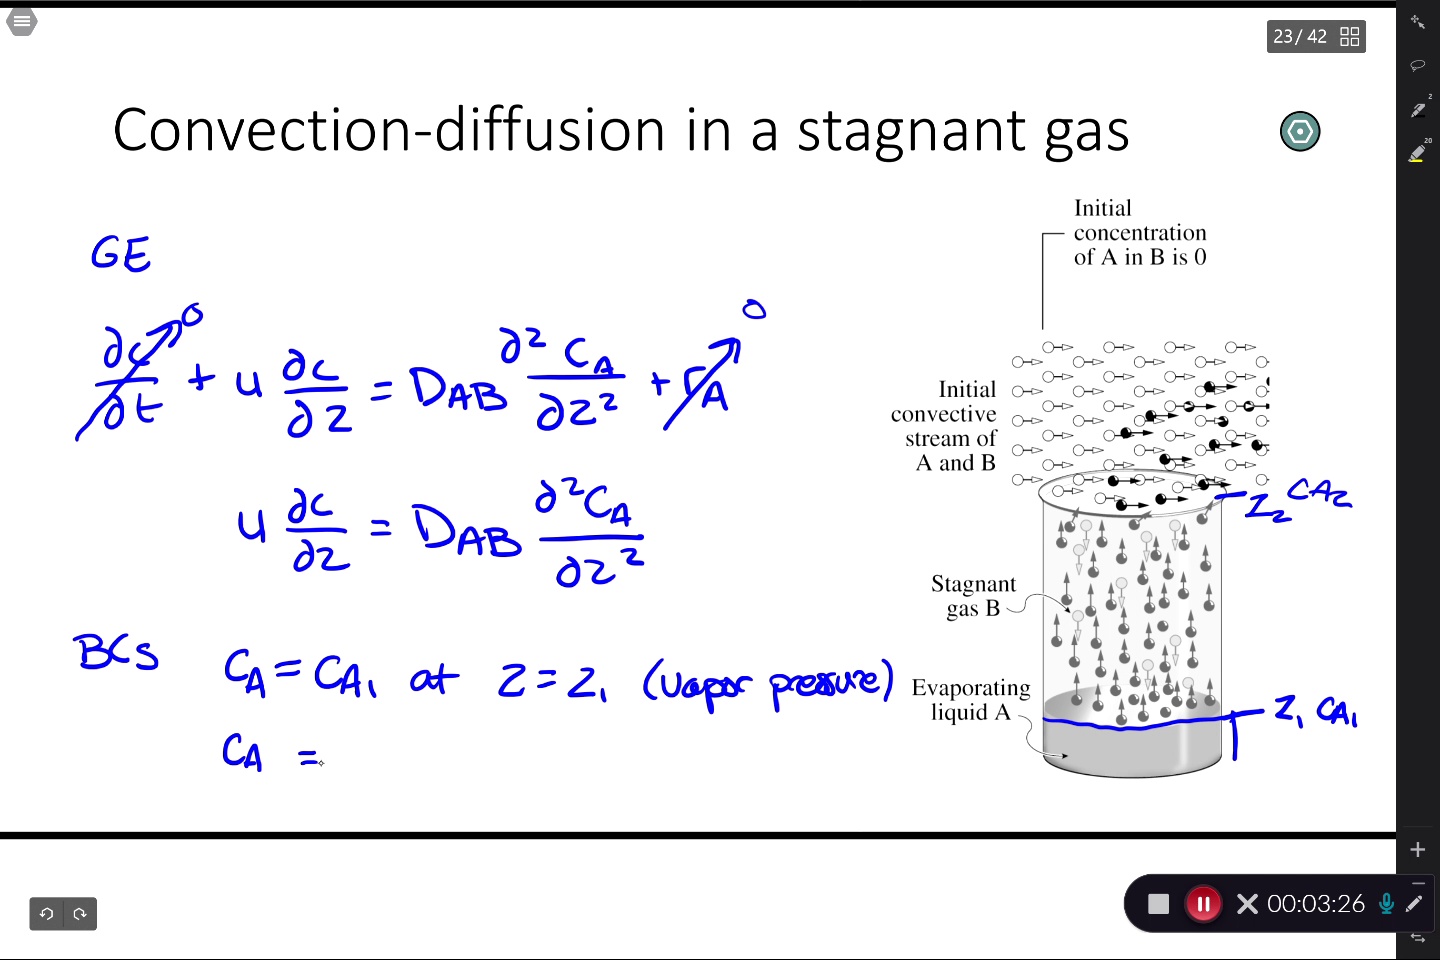 23 / 42
Convection-diffusion in a stagnant gas
2
20
GE
∂c/∂t → 0 + u ∂c/∂z = D_AB ∂²C_A/∂z² + r_A → 0
u ∂c/∂z = D_AB ∂²C_A/∂z²
BCs C_A = C_A1 at z = z_1 (vapor pressure)
C_A =
Initial
concentration
of A in B is 0
Initial
convective
stream of
A and B
z_2 C_A2
Stagnant
gas B
Evaporating
liquid A
z_1 C_A1
00:03:26